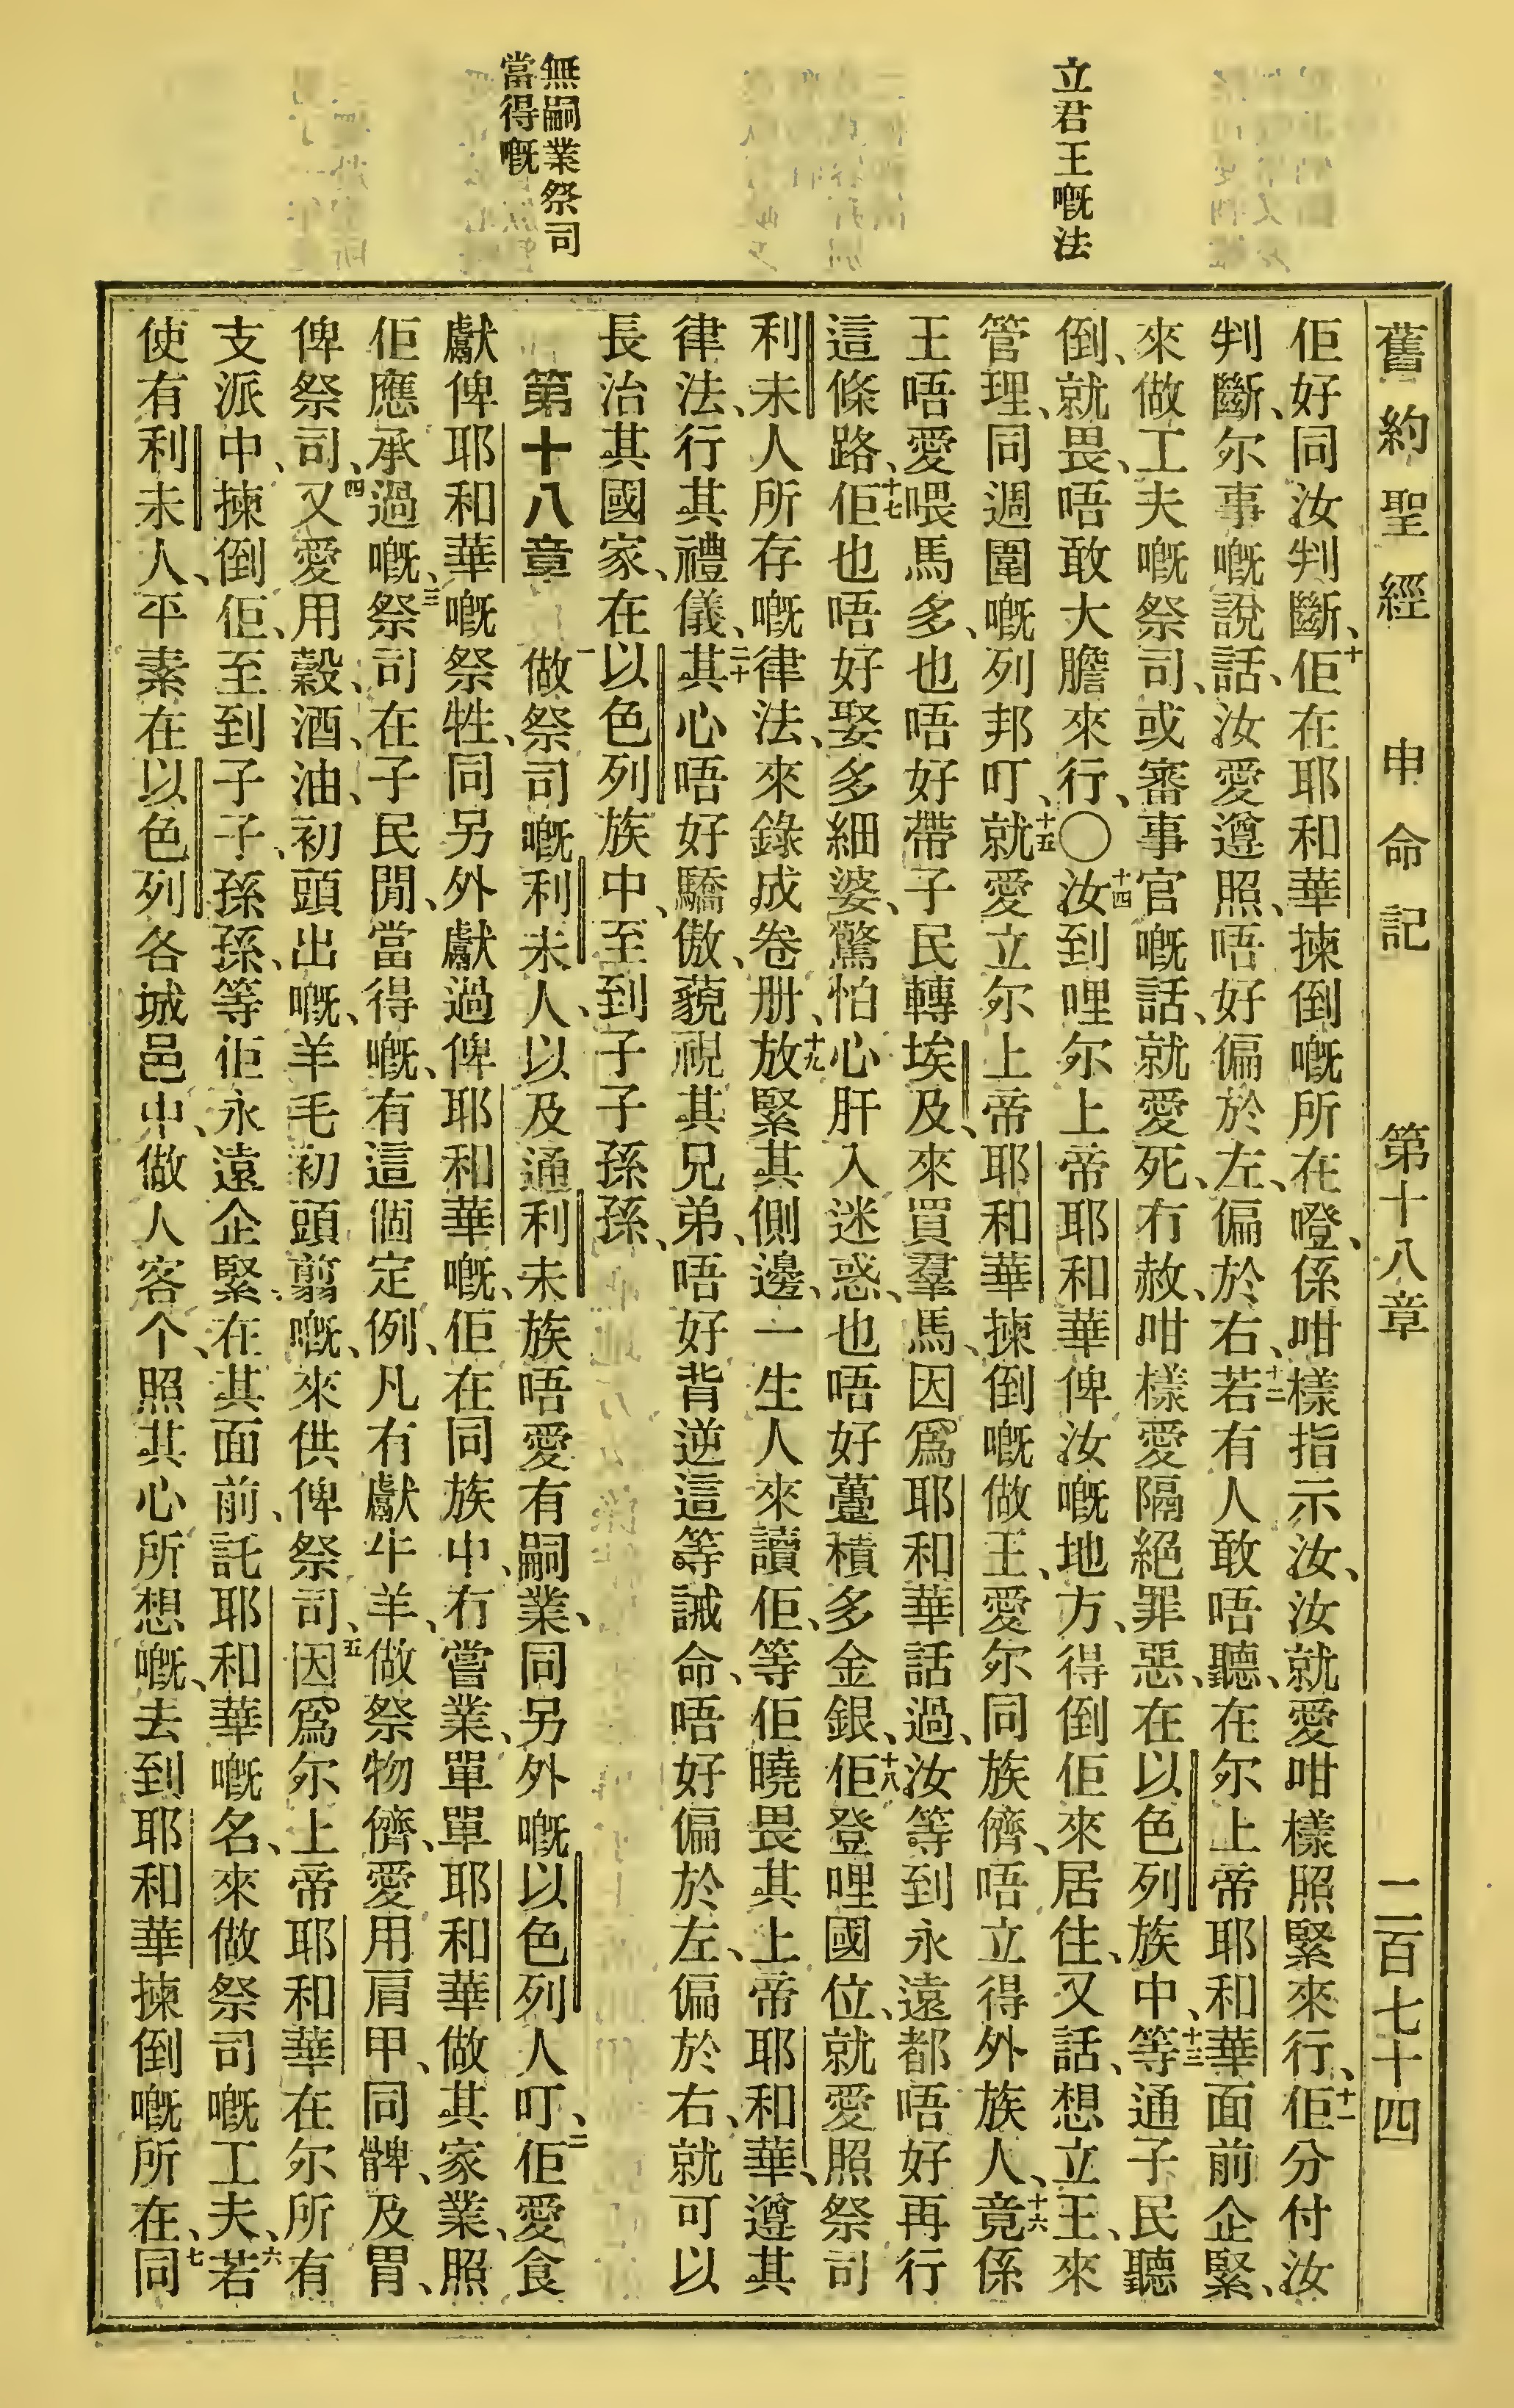 立君王嘅法
無嗣業祭司
當得嘅
舊約聖經 申命記 第十八章 二百七十四
佢好同汝判斷、十佢在耶和華揀倒嘅所在嶝、係咁樣指示汝、汝就愛咁樣照緊來行、十一佢分付汝
判斷、尔事嘅說話、汝愛遵照、唔好偏於左、偏於右、十二若有人敢唔聽、在尔上帝耶和華面前企緊、
來做工夫嘅祭司、或審事官嘅話、就愛死、冇赦、咁樣愛隔絕罪惡、在以色列族中、十三等通子民聽
倒、就畏、唔敢大膽來行、〇十四汝到哩尔上帝耶和華俾汝嘅地方、得倒佢來居住、又話、想立王、來
管理、同週圍嘅列邦叮、十五就愛立尔上帝耶和華揀倒嘅做王、愛尔同族儕、唔立得外族人、十六竟係
王唔愛喂馬多、也唔好帶子民轉埃及、來買羣馬、因爲耶和華話過、汝等到永遠都唔好再行
這條路、十七佢也唔好娶多細婆、驚怕心肝入迷惑、也唔好躉積多金銀、十八佢登哩國位、就愛照祭司
利未人所存嘅律法、來錄成卷册、十九放緊其側邊、一生人來讀佢、等佢曉畏其上帝耶和華、遵其
律法、行其禮儀、二十其心唔好驕傲、藐視其兄弟、唔好背逆這等誡命、唔好偏於左、偏於右、就可以
長治其國家、在以色列族中、至到子子孫孫、
第十八章 一做祭司嘅利未人、以及通利未族唔愛有嗣業、同另外嘅以色列人叮、二佢愛食
獻俾耶和華嘅祭牲、同另外獻過俾耶和華嘅、佢在同族中、冇嘗業、單單耶和華做其家業、照
佢應承過嘅、三祭司在子民閒、當得嘅、有這個定例、凡有獻牛羊、做祭物儕、愛用肩甲、同髀、及胃、
俾祭司、四又愛用穀、酒、油、初頭出嘅、羊毛初頭翦嘅、來供俾祭司、五因爲尔上帝耶和華在尔所有
支派中、揀倒佢、至到子子、孫孫、等佢永遠企緊在其面前、託耶和華嘅名、來做祭司嘅工夫、六若
使有利未人、平素在以色列各城邑中、做人客个、照其心所想嘅、去到耶和華揀倒嘅所在、七同